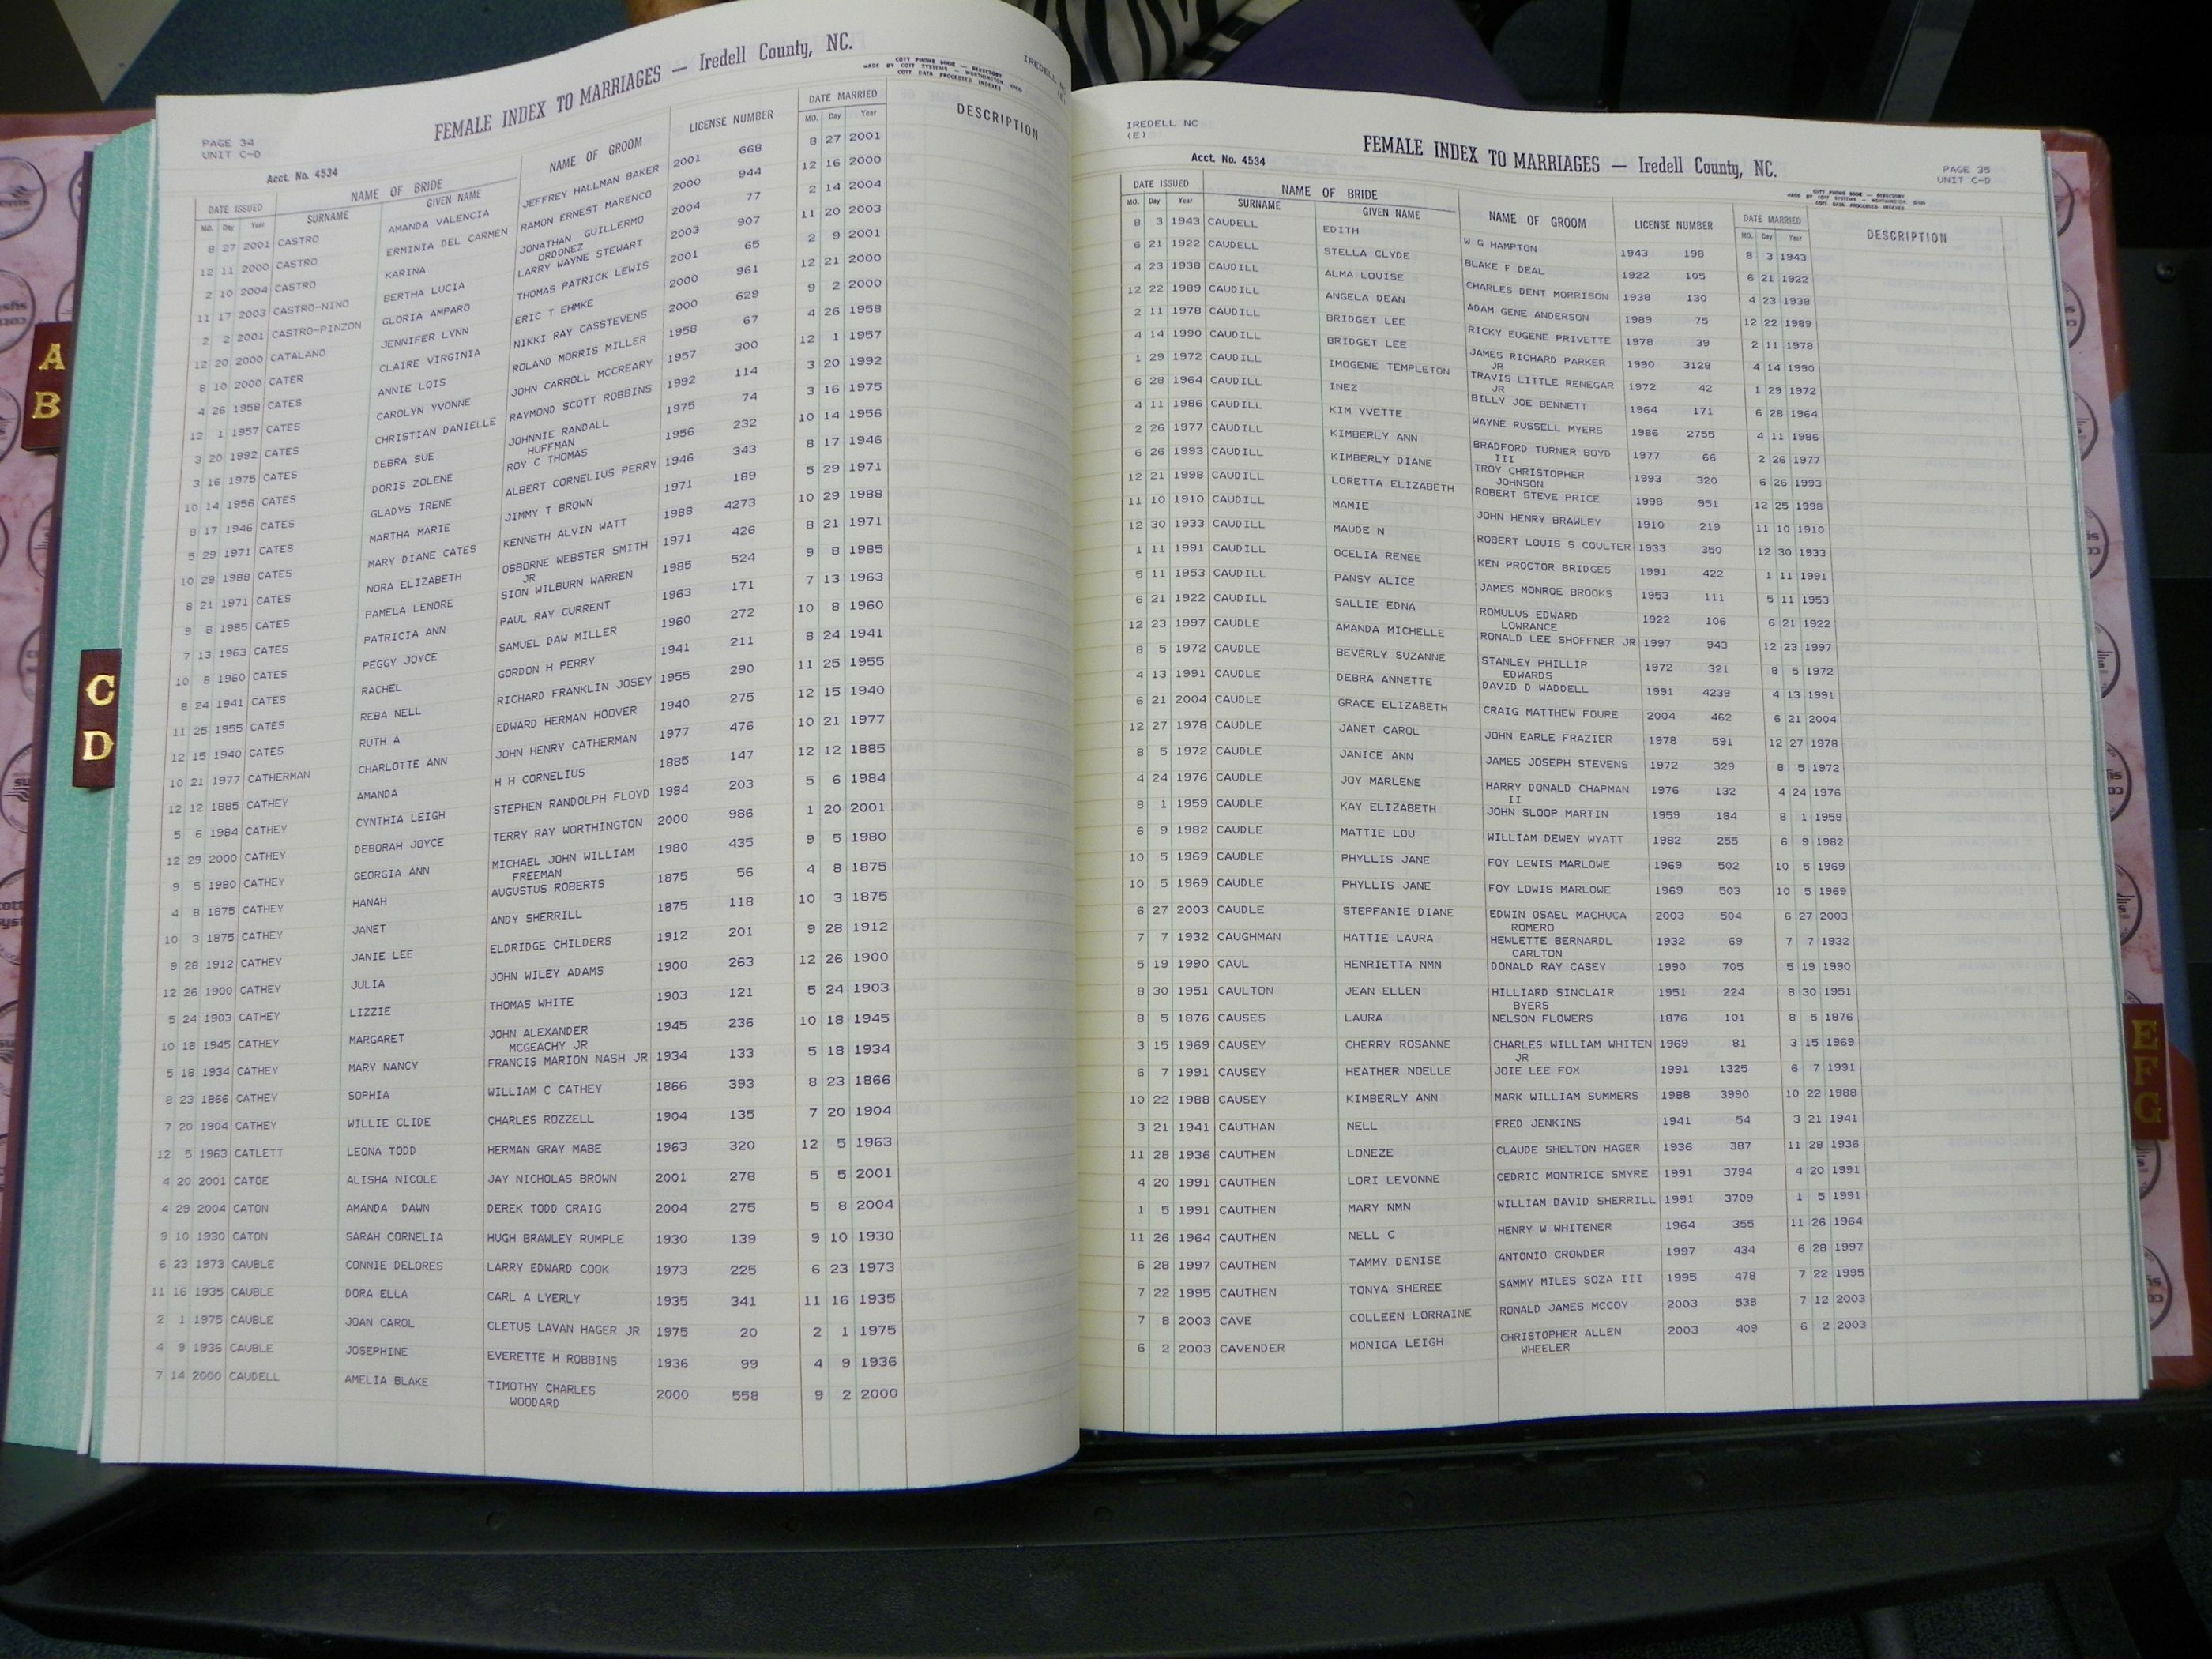 FEMALE INDEX TO MARRIAGES — Iredell County, NC.
COTT PHONE BOOK — DIRECTORY
MADE BY COTT SYSTEMS — WORTHINGTON OHIO
COTT DATA PROCESSED INDEXES
PAGE 34
UNIT C-D
Acct. No. 4534
DATE ISSUED NAME OF BRIDE NAME OF GROOM LICENSE NUMBER DATE MARRIED DESCRIPTION
MO. Day Year SURNAME GIVEN NAME MO. Day Year
8 27 2001 CASTRO AMANDA VALENCIA JEFFREY HALLMAN BAKER 2001 668 8 27 2001
12 11 2000 CASTRO ERMINIA DEL CARMEN RAMON ERNEST MARENCO 2000 944 12 16 2000
2 10 2004 CASTRO KARINA JONATHAN GUILLERMO 2004 77 2 14 2004
ORDONEZ
11 17 2003 CASTRO-NINO BERTHA LUCIA LARRY WAYNE STEWART 2003 907 11 20 2003
2 2 2001 CASTRO-PINZON GLORIA AMPARO THOMAS PATRICK LEWIS 2001 65 2 9 2001
12 20 2000 CATALANO JENNIFER LYNN ERIC T EHMKE 2000 961 12 21 2000
8 10 2000 CATER CLAIRE VIRGINIA NIKKI RAY CASSTEVENS 2000 629 9 2 2000
4 26 1958 CATES ANNIE LOIS ROLAND MORRIS MILLER 1958 67 4 26 1958
12 1 1957 CATES CAROLYN YVONNE JOHN CARROLL MCCREARY 1957 300 12 1 1957
3 20 1992 CATES CHRISTIAN DANIELLE RAYMOND SCOTT ROBBINS 1992 114 3 20 1992
3 16 1975 CATES DEBRA SUE JOHNNIE RANDALL 1975 74 3 16 1975
HUFFMAN
10 14 1956 CATES DORIS ZOLENE ROY C THOMAS 1956 232 10 14 1956
8 17 1946 CATES GLADYS IRENE ALBERT CORNELIUS PERRY 1946 343 8 17 1946
5 29 1971 CATES MARTHA MARIE JIMMY T BROWN 1971 189 5 29 1971
10 29 1988 CATES MARY DIANE CATES KENNETH ALVIN WATT 1988 4273 10 29 1988
8 21 1971 CATES NORA ELIZABETH OSBORNE WEBSTER SMITH 1971 426 8 21 1971
JR
9 8 1985 CATES PAMELA LENORE SION WILBURN WARREN 1985 524 9 8 1985
7 13 1963 CATES PATRICIA ANN PAUL RAY CURRENT 1963 171 7 13 1963
10 8 1960 CATES PEGGY JOYCE SAMUEL DAW MILLER 1960 272 10 8 1960
8 24 1941 CATES RACHEL GORDON H PERRY 1941 211 8 24 1941
11 25 1955 CATES REBA NELL RICHARD FRANKLIN JOSEY 1955 290 11 25 1955
12 15 1940 CATES RUTH A EDWARD HERMAN HOOVER 1940 275 12 15 1940
10 21 1977 CATHERMAN CHARLOTTE ANN JOHN HENRY CATHERMAN 1977 476 10 21 1977
12 12 1885 CATHEY AMANDA H H CORNELIUS 1885 147 12 12 1885
5 6 1984 CATHEY CYNTHIA LEIGH STEPHEN RANDOLPH FLOYD 1984 203 5 6 1984
12 29 2000 CATHEY DEBORAH JOYCE TERRY RAY WORTHINGTON 2000 986 1 20 2001
9 5 1980 CATHEY GEORGIA ANN MICHAEL JOHN WILLIAM 1980 435 9 5 1980
FREEMAN
4 8 1875 CATHEY HANAH AUGUSTUS ROBERTS 1875 56 4 8 1875
10 3 1875 CATHEY JANET ANDY SHERRILL 1875 118 10 3 1875
9 28 1912 CATHEY JANIE LEE ELDRIDGE CHILDERS 1912 201 9 28 1912
12 26 1900 CATHEY JULIA JOHN WILEY ADAMS 1900 263 12 26 1900
5 24 1903 CATHEY LIZZIE THOMAS WHITE 1903 121 5 24 1903
10 18 1945 CATHEY MARGARET JOHN ALEXANDER 1945 236 10 18 1945
MCGEACHY JR
5 18 1934 CATHEY MARY NANCY FRANCIS MARION NASH JR 1934 133 5 18 1934
8 23 1866 CATHEY SOPHIA WILLIAM C CATHEY 1866 393 8 23 1866
7 20 1904 CATHEY WILLIE CLIDE CHARLES ROZZELL 1904 135 7 20 1904
12 5 1963 CATLETT LEONA TODD HERMAN GRAY MABE 1963 320 12 5 1963
4 20 2001 CATOE ALISHA NICOLE JAY NICHOLAS BROWN 2001 278 5 5 2001
4 29 2004 CATON AMANDA DAWN DEREK TODD CRAIG 2004 275 5 8 2004
9 10 1930 CATON SARAH CORNELIA HUGH BRAWLEY RUMPLE 1930 139 9 10 1930
6 23 1973 CAUBLE CONNIE DELORES LARRY EDWARD COOK 1973 225 6 23 1973
11 16 1935 CAUBLE DORA ELLA CARL A LYERLY 1935 341 11 16 1935
2 1 1975 CAUBLE JOAN CAROL CLETUS LAVAN HAGER JR 1975 20 2 1 1975
4 9 1936 CAUBLE JOSEPHINE EVERETTE H ROBBINS 1936 99 4 9 1936
7 14 2000 CAUDELL AMELIA BLAKE TIMOTHY CHARLES 2000 558 9 2 2000
WOODARD
IREDELL NC
(E)
FEMALE INDEX TO MARRIAGES — Iredell County, NC.
PAGE 35
UNIT C-D
Acct. No. 4534
COTT PHONE BOOK — DIRECTORY
MADE BY COTT SYSTEMS — WORTHINGTON OHIO
COTT DATA PROCESSED INDEXES
DATE ISSUED NAME OF BRIDE NAME OF GROOM LICENSE NUMBER DATE MARRIED DESCRIPTION
MO. Day Year SURNAME GIVEN NAME MO. Day Year
8 3 1943 CAUDELL EDITH W G HAMPTON 1943 198 8 3 1943
6 21 1922 CAUDELL STELLA CLYDE BLAKE F DEAL 1922 105 6 21 1922
4 23 1938 CAUDILL ALMA LOUISE CHARLES DENT MORRISON 1938 130 4 23 1938
12 22 1989 CAUDILL ANGELA DEAN ADAM GENE ANDERSON 1989 75 12 22 1989
2 11 1978 CAUDILL BRIDGET LEE RICKY EUGENE PRIVETTE 1978 39 2 11 1978
4 14 1990 CAUDILL BRIDGET LEE JAMES RICHARD PARKER 1990 3128 4 14 1990
JR
1 29 1972 CAUDILL IMOGENE TEMPLETON TRAVIS LITTLE RENEGAR 1972 42 1 29 1972
JR
6 28 1964 CAUDILL INEZ BILLY JOE BENNETT 1964 171 6 28 1964
4 11 1986 CAUDILL KIM YVETTE WAYNE RUSSELL MYERS 1986 2755 4 11 1986
2 26 1977 CAUDILL KIMBERLY ANN BRADFORD TURNER BOYD 1977 66 2 26 1977
III
6 26 1993 CAUDILL KIMBERLY DIANE TROY CHRISTOPHER 1993 320 6 26 1993
JOHNSON
12 21 1998 CAUDILL LORETTA ELIZABETH ROBERT STEVE PRICE 1998 951 12 25 1998
11 10 1910 CAUDILL MAMIE JOHN HENRY BRAWLEY 1910 219 11 10 1910
12 30 1933 CAUDILL MAUDE N ROBERT LOUIS S COULTER 1933 350 12 30 1933
1 11 1991 CAUDILL OCELIA RENEE KEN PROCTOR BRIDGES 1991 422 1 11 1991
5 11 1953 CAUDILL PANSY ALICE JAMES MONROE BROOKS 1953 111 5 11 1953
6 21 1922 CAUDILL SALLIE EDNA ROMULUS EDWARD 1922 106 6 21 1922
LOWRANCE
12 23 1997 CAUDLE AMANDA MICHELLE RONALD LEE SHOFFNER JR 1997 943 12 23 1997
8 5 1972 CAUDLE BEVERLY SUZANNE STANLEY PHILLIP 1972 321 8 5 1972
EDWARDS
4 13 1991 CAUDLE DEBRA ANNETTE DAVID D WADDELL 1991 4239 4 13 1991
6 21 2004 CAUDLE GRACE ELIZABETH CRAIG MATTHEW FOURE 2004 462 6 21 2004
12 27 1978 CAUDLE JANET CAROL JOHN EARLE FRAZIER 1978 591 12 27 1978
8 5 1972 CAUDLE JANICE ANN JAMES JOSEPH STEVENS 1972 329 8 5 1972
4 24 1976 CAUDLE JOY MARLENE HARRY DONALD CHAPMAN 1976 132 4 24 1976
II
8 1 1959 CAUDLE KAY ELIZABETH JOHN SLOOP MARTIN 1959 184 8 1 1959
6 9 1982 CAUDLE MATTIE LOU WILLIAM DEWEY WYATT 1982 255 6 9 1982
10 5 1969 CAUDLE PHYLLIS JANE FOY LEWIS MARLOWE 1969 502 10 5 1969
10 5 1969 CAUDLE PHYLLIS JANE FOY LOWIS MARLOWE 1969 503 10 5 1969
6 27 2003 CAUDLE STEPFANIE DIANE EDWIN OSAEL MACHUCA 2003 504 6 27 2003
ROMERO
7 7 1932 CAUGHMAN HATTIE LAURA HEWLETTE BERNARDL 1932 69 7 7 1932
CARLTON
5 19 1990 CAUL HENRIETTA NMN DONALD RAY CASEY 1990 705 5 19 1990
8 30 1951 CAULTON JEAN ELLEN HILLIARD SINCLAIR 1951 224 8 30 1951
BYERS
8 5 1876 CAUSES LAURA NELSON FLOWERS 1876 101 8 5 1876
3 15 1969 CAUSEY CHERRY ROSANNE CHARLES WILLIAM WHITEN 1969 81 3 15 1969
JR
6 7 1991 CAUSEY HEATHER NOELLE JOIE LEE FOX 1991 1325 6 7 1991
10 22 1988 CAUSEY KIMBERLY ANN MARK WILLIAM SUMMERS 1988 3990 10 22 1988
3 21 1941 CAUTHAN NELL FRED JENKINS 1941 54 3 21 1941
11 28 1936 CAUTHEN LONEZE CLAUDE SHELTON HAGER 1936 387 11 28 1936
4 20 1991 CAUTHEN LORI LEVONNE CEDRIC MONTRICE SMYRE 1991 3794 4 20 1991
1 5 1991 CAUTHEN MARY NMN WILLIAM DAVID SHERRILL 1991 3709 1 5 1991
11 26 1964 CAUTHEN NELL C HENRY W WHITENER 1964 355 11 26 1964
6 28 1997 CAUTHEN TAMMY DENISE ANTONIO CROWDER 1997 434 6 28 1997
7 22 1995 CAUTHEN TONYA SHEREE SAMMY MILES SOZA III 1995 478 7 22 1995
7 8 2003 CAVE COLLEEN LORRAINE RONALD JAMES MCCOY 2003 538 7 12 2003
6 2 2003 CAVENDER MONICA LEIGH CHRISTOPHER ALLEN 2003 409 6 2 2003
WHEELER
A
B
C
D
E
F
G